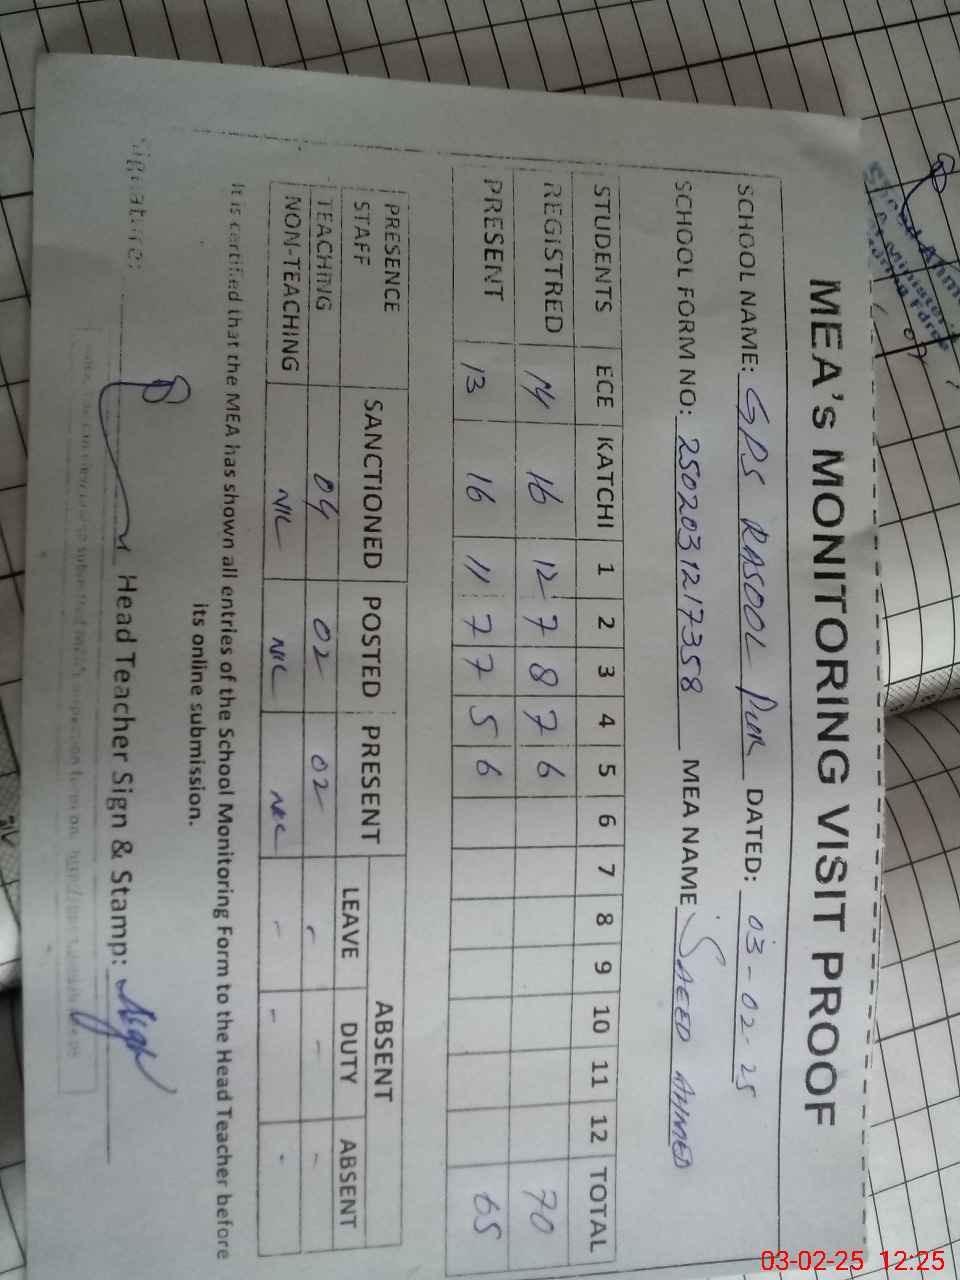 MEA's MONITORING VISIT PROOF
SCHOOL NAME: GPS RASOOL PUR DATED: 03-02-25
SCHOOL FORM NO: 2502031217358 MEA NAME SAEED AHMED
STUDENTS ECE KATCHI 1 2 3 4 5 6 7 8 9 10 11 12 TOTAL
REGISTRED 14 16 12 7 8 7 6 70
PRESENT 13 16 11 7 7 5 6 65
PRESENCE STAFF SANCTIONED POSTED PRESENT ABSENT
LEAVE DUTY ABSENT
TEACHING 04 02 02 - - -
NON-TEACHING NIL NIL NIL - - -
It is certified that the MEA has shown all entries of the School Monitoring Form to the Head Teacher before
its online submission.
Signature: Head Teacher Sign & Stamp:
03-02-25 12:25